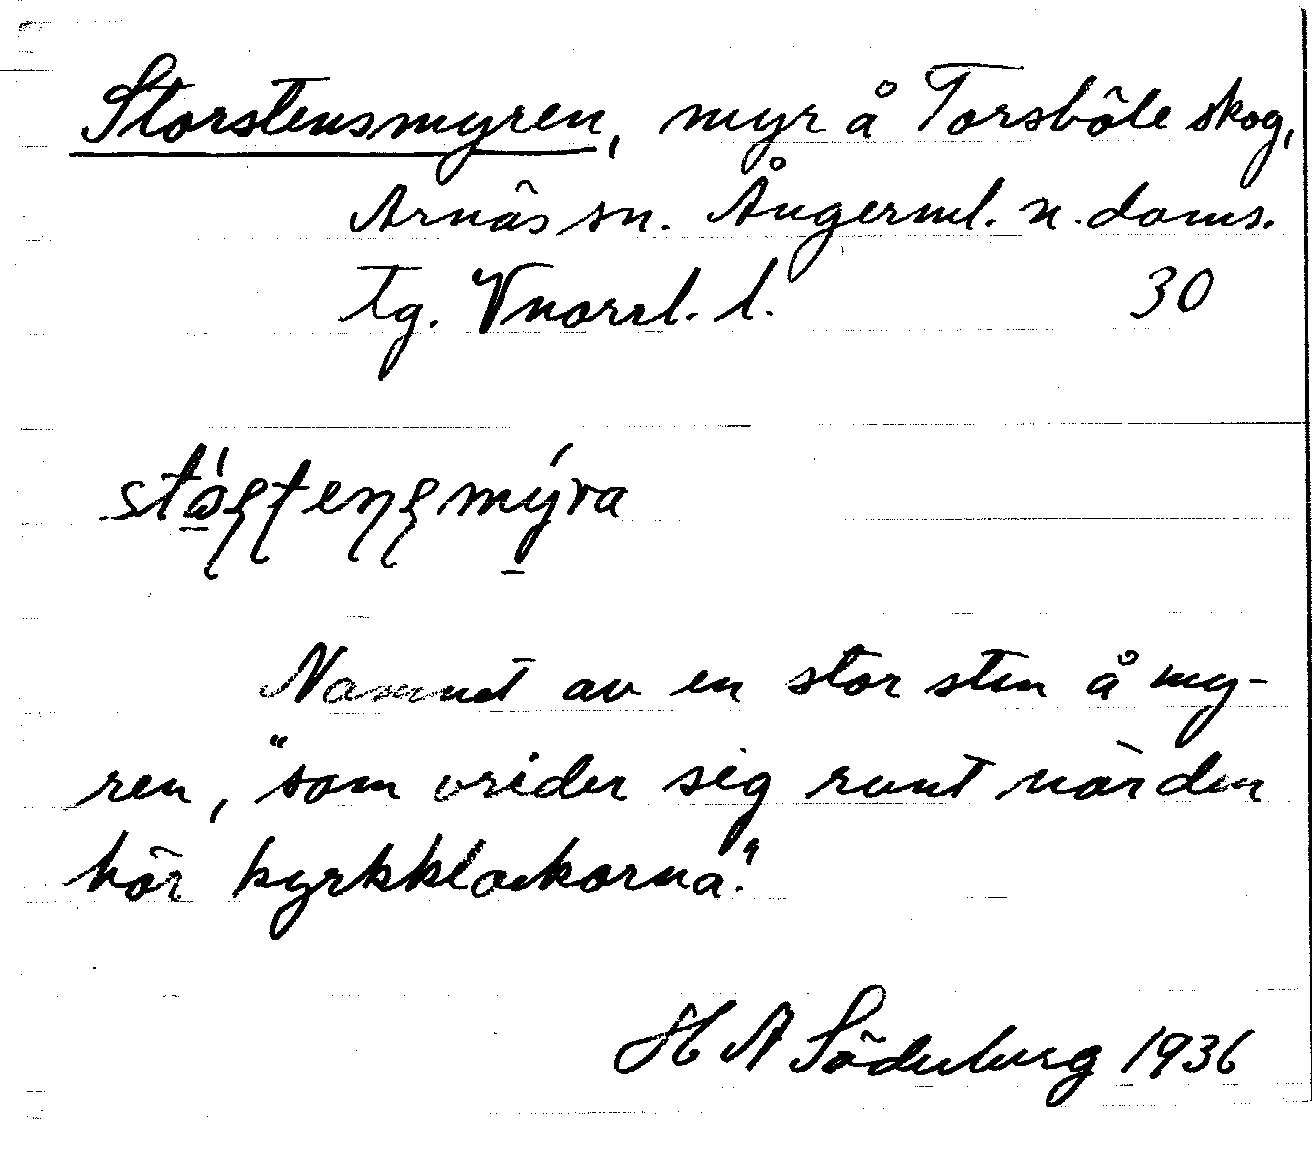 Storstensmyren, myr å Torsböle skog,
Arnäs sn. Ångerml. n. doms.
tg. Vnorrl. l. 30
Namnet av en stor sten å my-
ren, "som vrider sig runt när den
hör kyrkklockorna".
H A Söderberg 1936